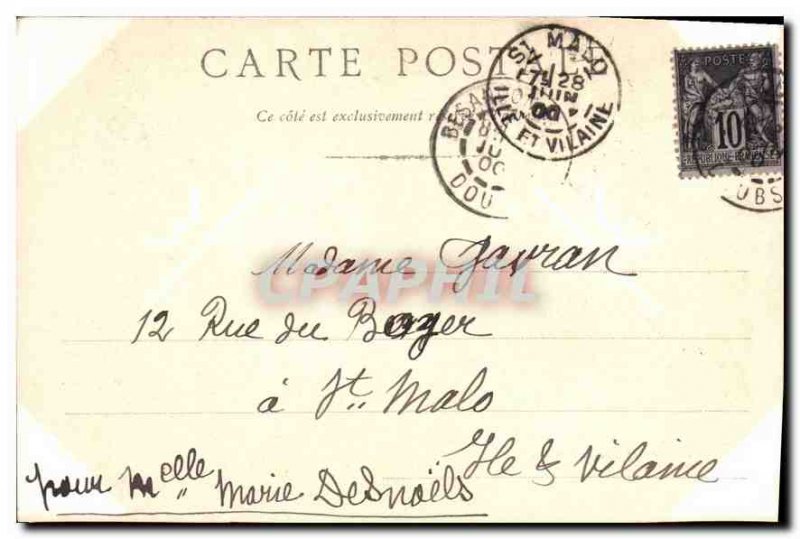 CARTE POST
Ce côté est exclusivement r
ST MALO
7E 28
JUIN
00
ILLE ET VILAINE
BESA
JU
00
DOU
POSTE
10
REPUBLIQUE FRANÇAISE
UBS
CPAPHIL
Madame Gavran
12 Rue du Boyer
à St. Malo
Ile & Vilaine
pour Melle Marie Desnoëls